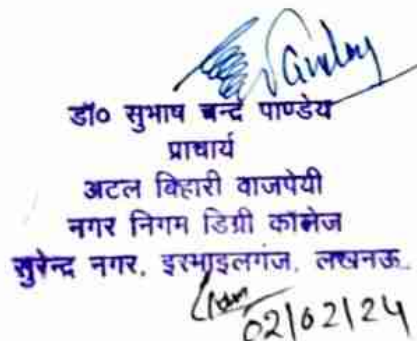 डॉ० सुभाष चन्द्र पाण्डेय
प्राचार्य
अटल बिहारी वाजपेयी
नगर निगम डिग्री कॉलेज
सुरेन्द्र नगर, इस्माइलगंज, लखनऊ
02/02/24